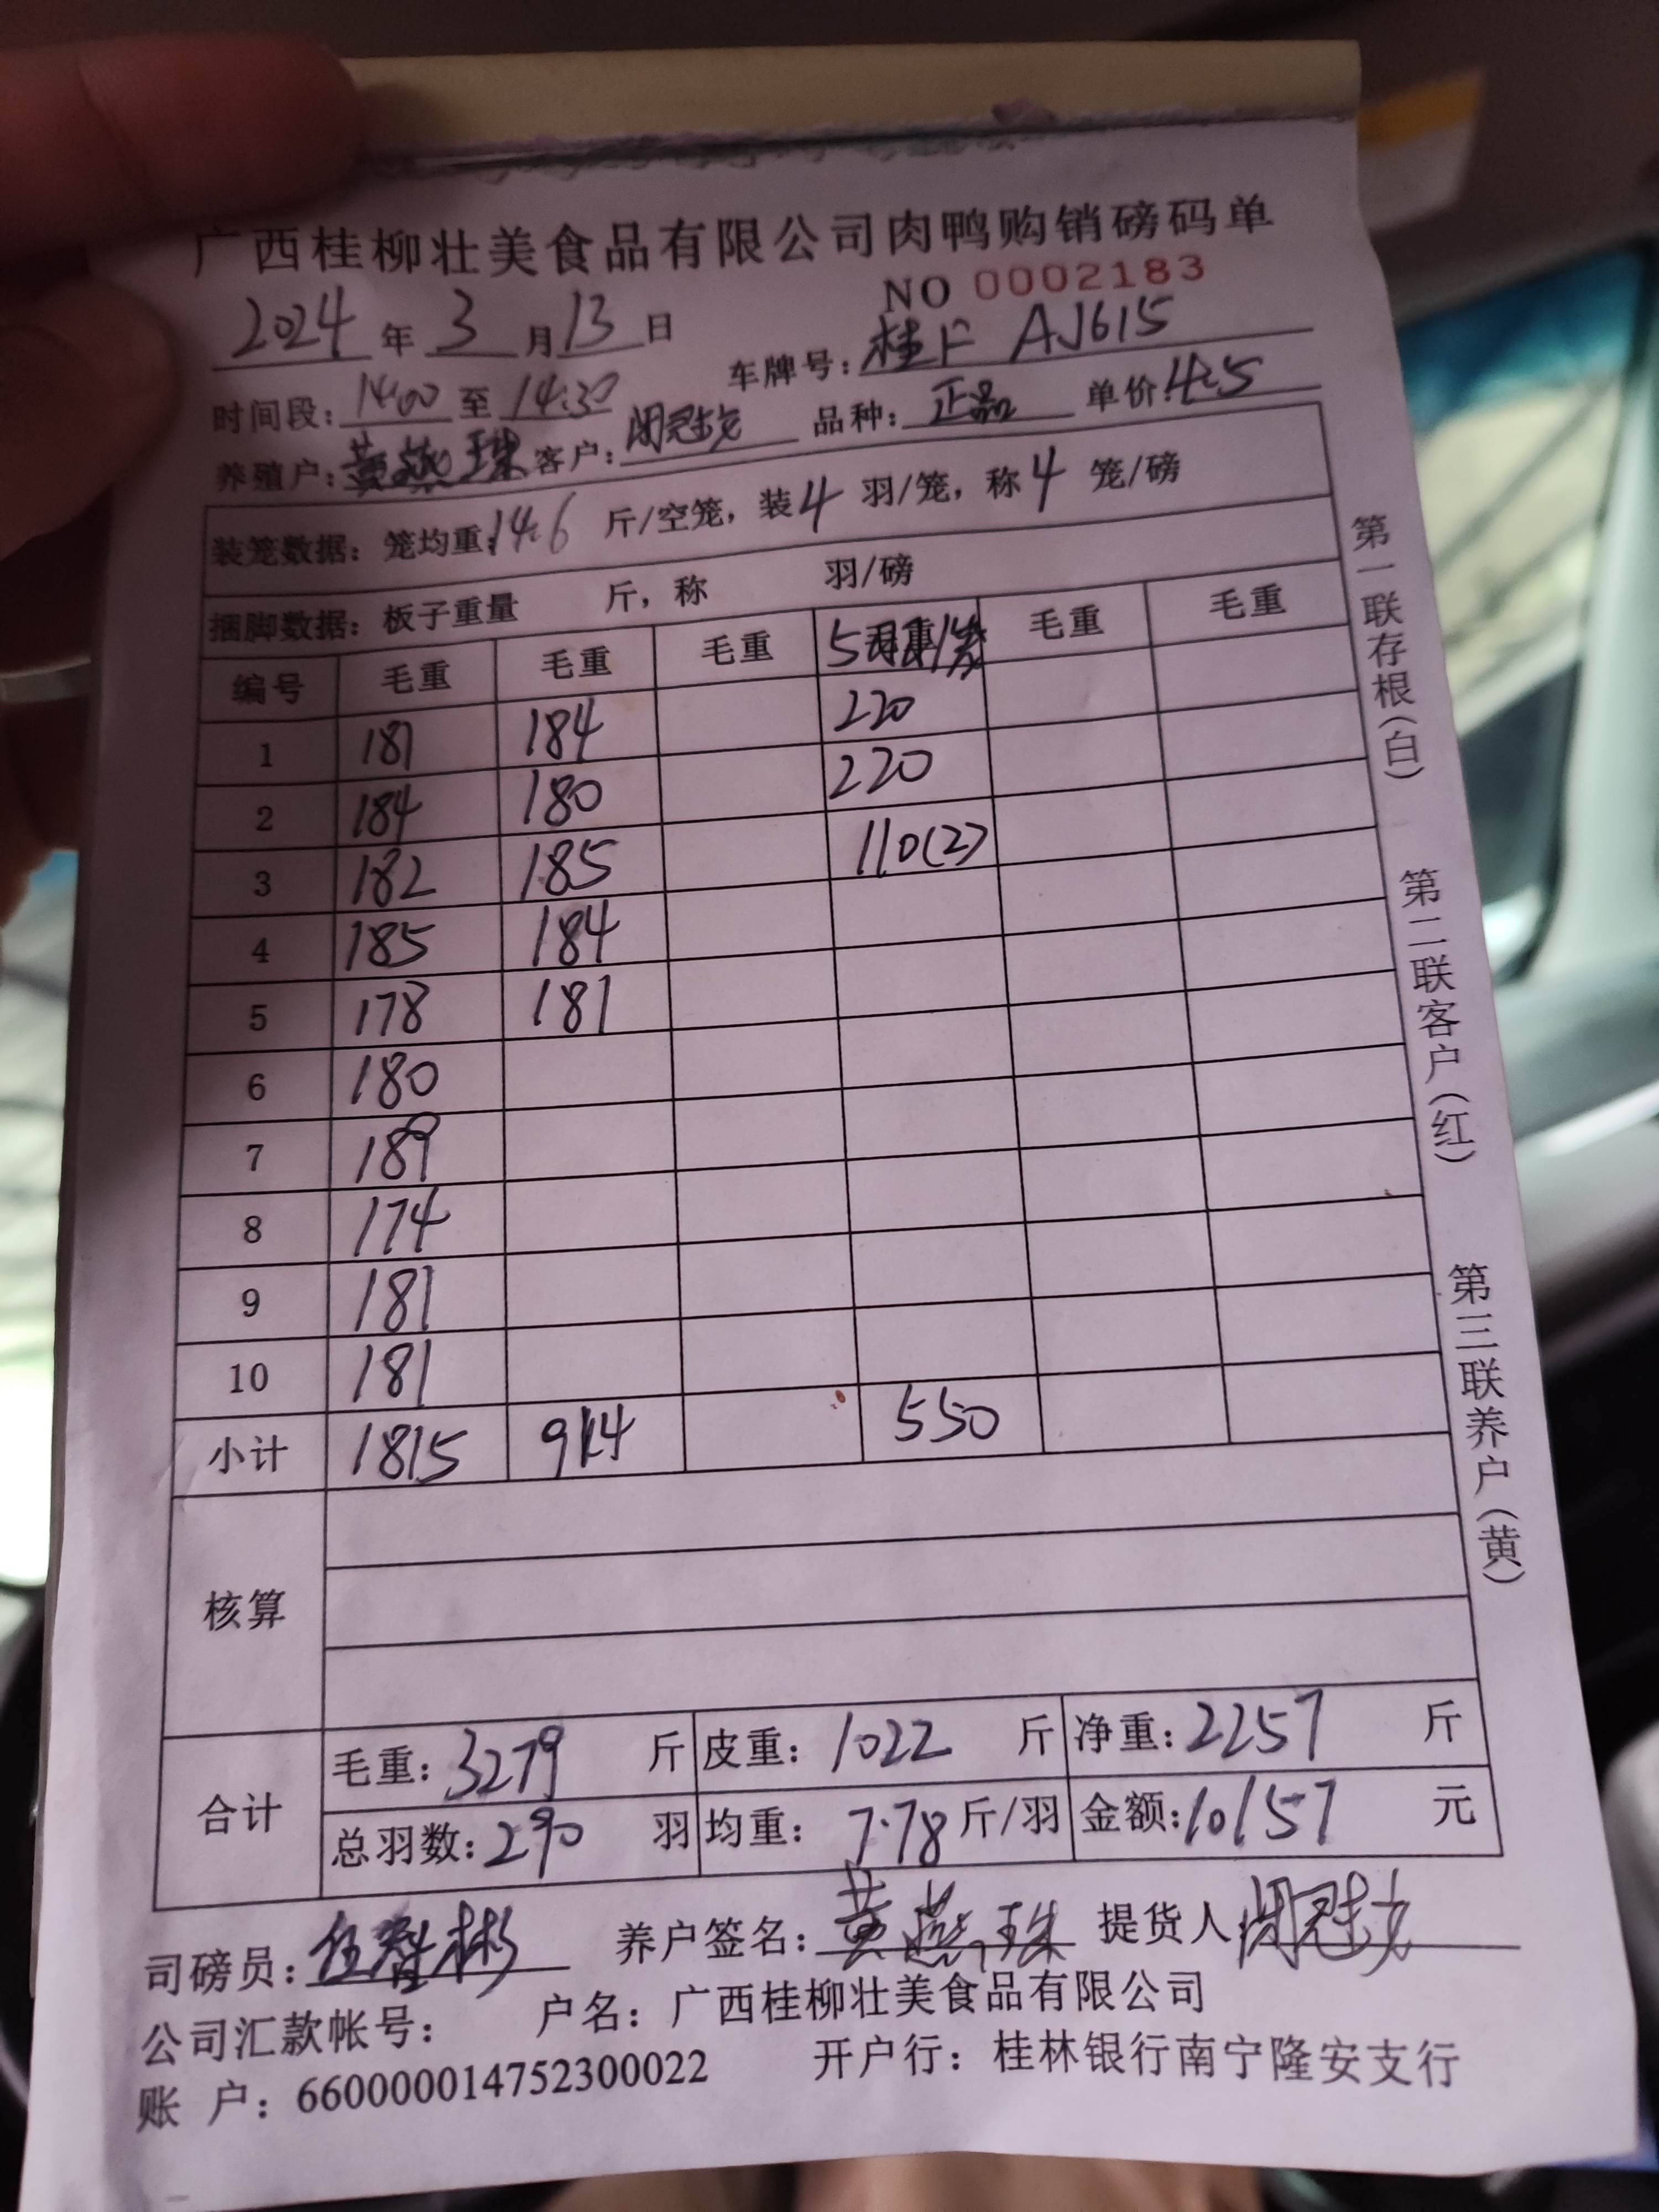 广西桂柳壮美食品有限公司肉鸭购销磅码单
NO 0002183
2024 年 3 月 13 日 车牌号: 桂F AJ615
时间段: 14:00 至 14:30
养殖户: 黄燕珠 客户: 闭冠 品种: 正品 单价: 4.5
装笼数据: 笼均重: 14.6 斤/空笼, 装 4 羽/笼, 称 4 笼/磅
捆脚数据: 板子重量 斤, 称 羽/磅
编号 毛重 毛重 毛重 5 毛重 毛重
1 181 184 220
2 184 180 220
3 182 185 110(2)
4 185 184
5 178 181
6 180
7 189
8 174
9 181
10 181
小计 1815 914 550
核算
合计
毛重: 3279 斤 皮重: 1022 斤 净重: 2257 斤
总羽数: 290 羽 均重: 7.78 斤/羽 金额: 10157 元
司磅员: 伍智彬 养户签名: 黄燕珠 提货人: 闭冠
公司汇款帐号: 户名: 广西桂柳壮美食品有限公司
账 户: 660000014752300022 开户行: 桂林银行南宁隆安支行
第一联存根(白)
第二联客户(红)
第三联养户(黄)